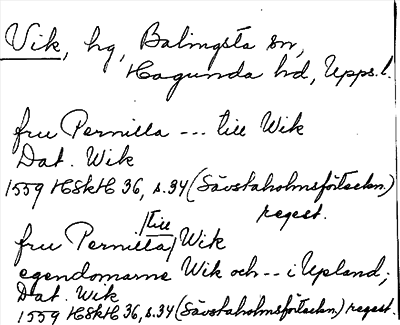 Vik, hg, Balingsta sn,
Hagunda hd, Upps.l.
fru Pernilla --- till Wik
Dat. Wik
1559 HSkH 36, s.34 (Sävstaholmsförteckn.)
regest.
fru Pernilla, till Wik
egendomarne Wik och -- i Upland;
Dat. Wik
1559 HSkH 36, s.34 (Sävstaholmsförteckn.) regest.